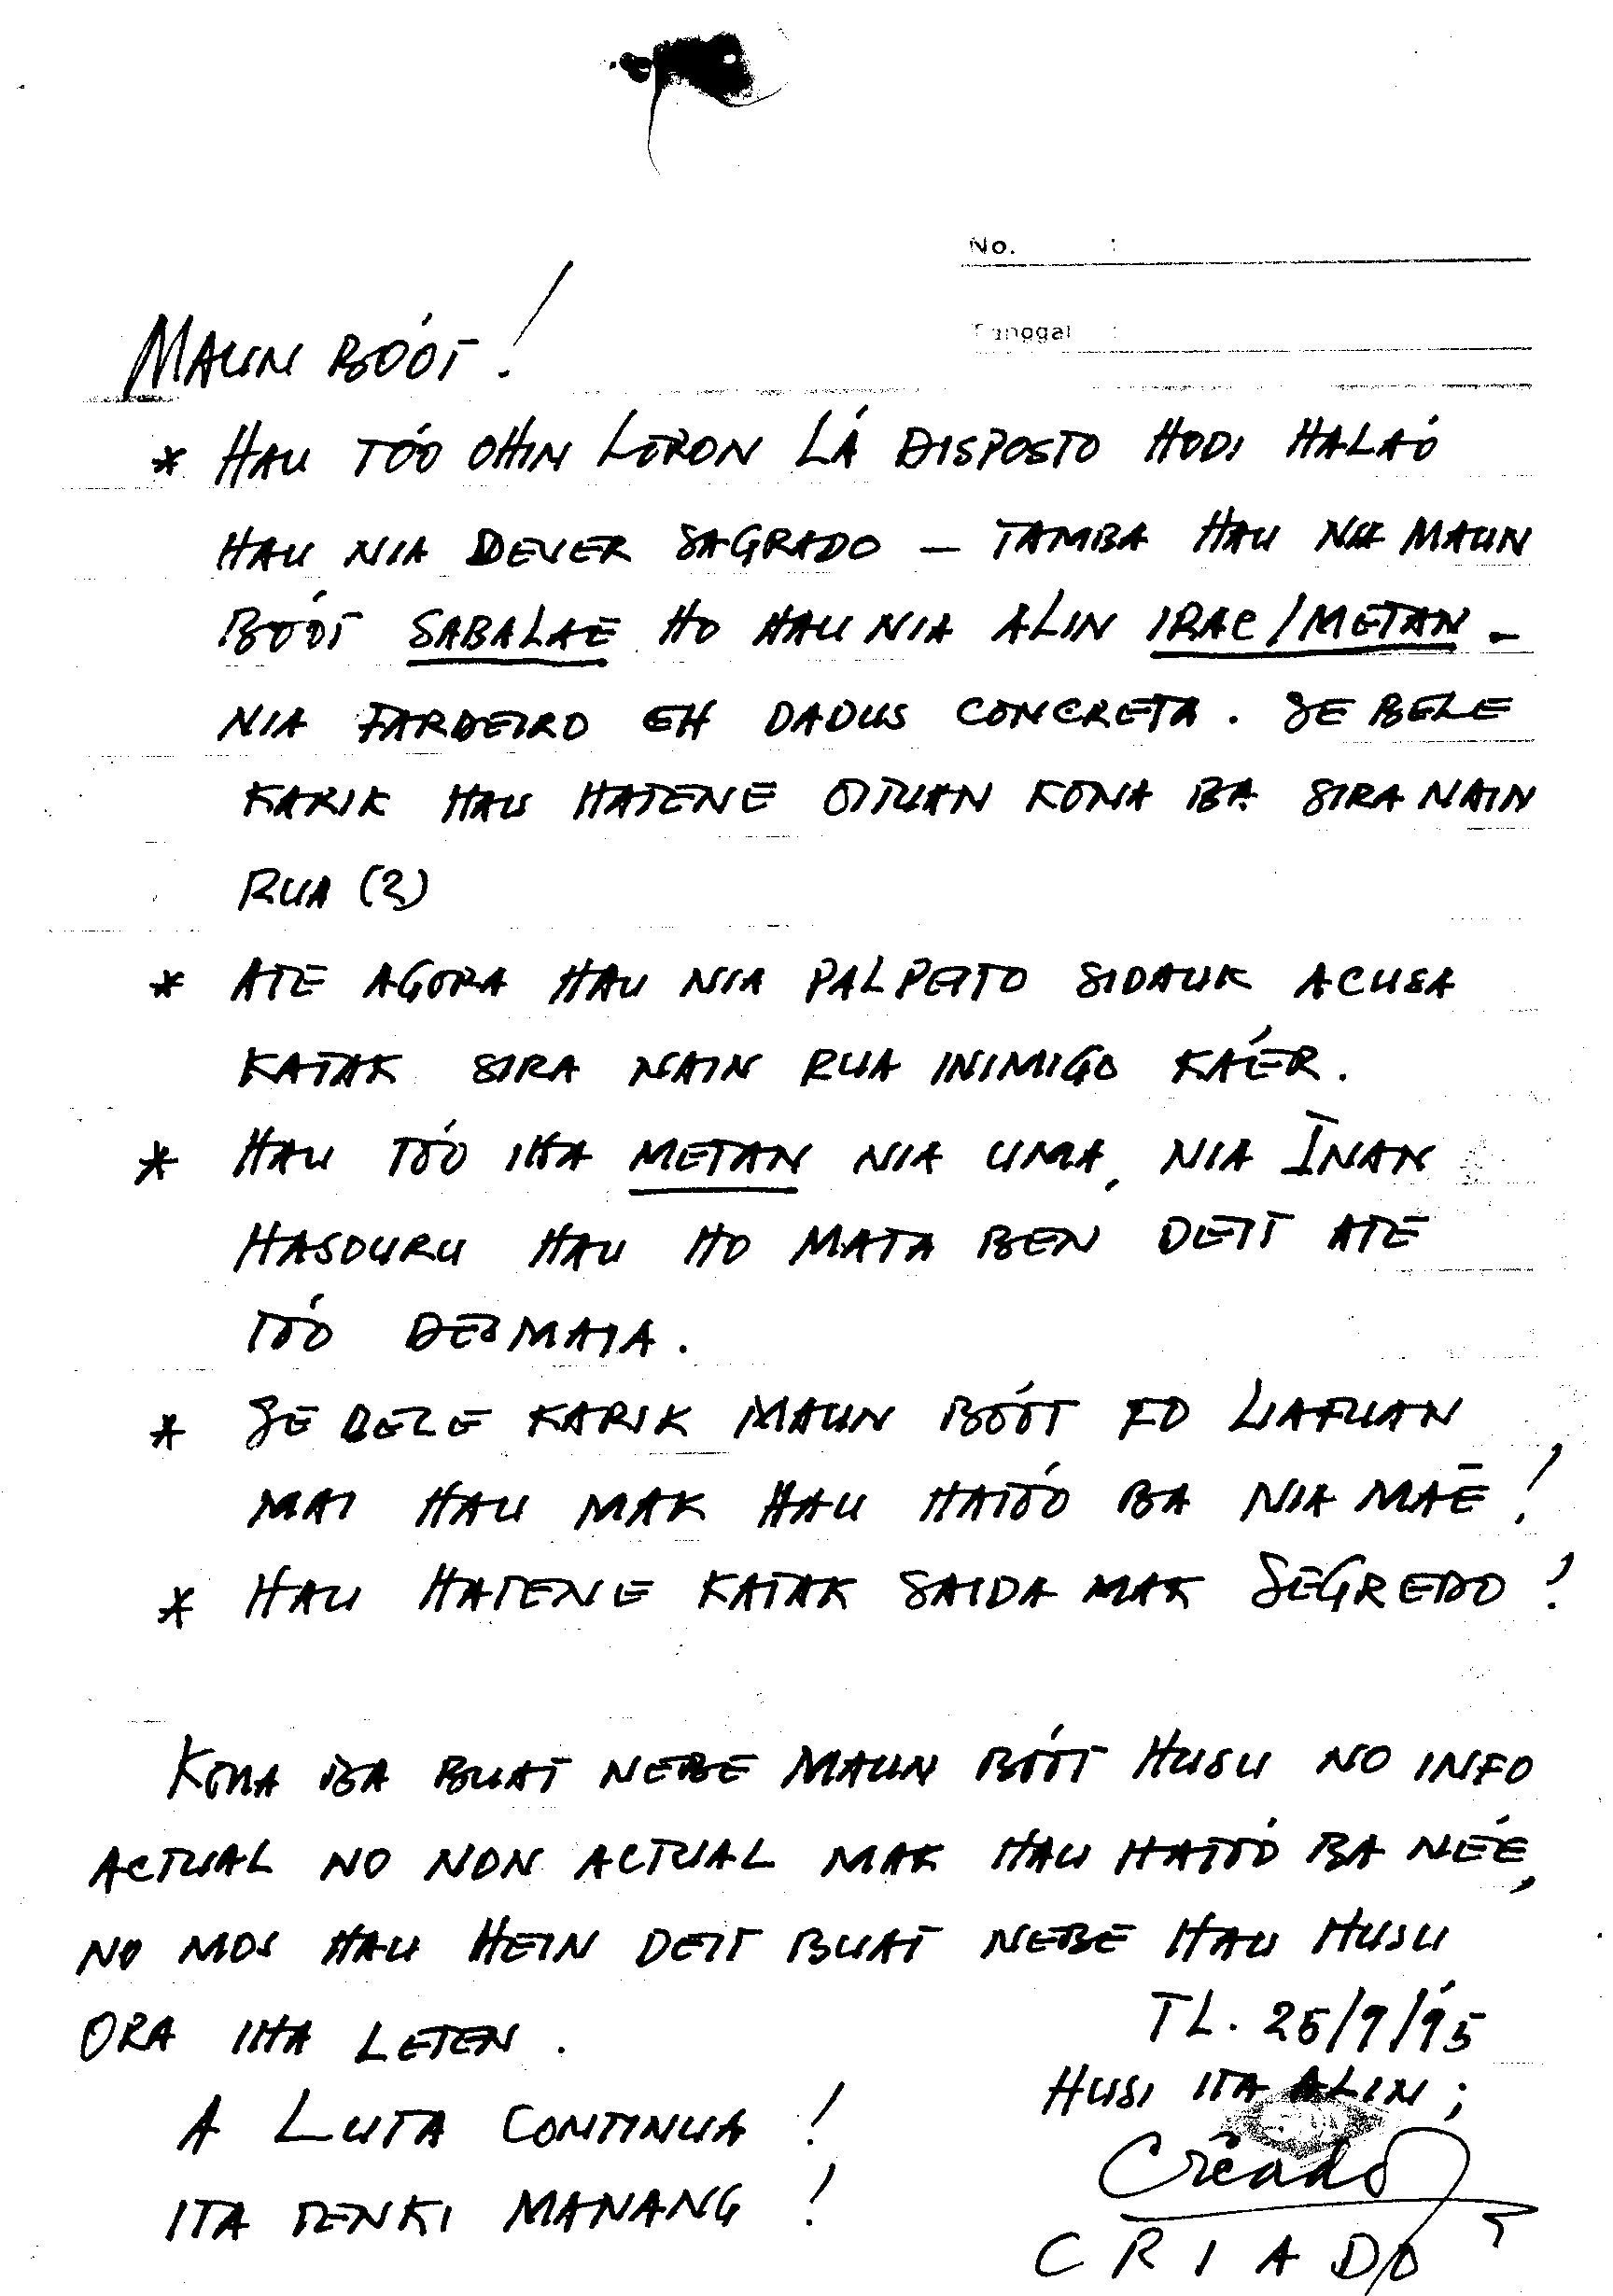 No. :
Tanggal :
MAUN BÓOT !
* HAU TÓO OHIN LORON LÁ DISPOSTO HODI HALAÓ
HAU NIA DEVER SAGRADO — TAMBA HAU NIA MAUN
BOÓT SABALAE HO HAU NIA ALIN IRAC/METAN -
NIA PARDEIRO EH DADUS CONCRETA. SE BELE
KARIK HAU HATENE OITUAN KONA BA SIRA NAIN
RUA (?)
* ATE AGORA HAU NIA PALPEITO SIDAUK ACUSA
KATAK SIRA NAIN RUA INIMIGO KAÉR.
* HAU TÓO IHA METAN NIA UMA, NIA INAN
HASOURU HAU HO MATA BEN DEIT ATE
TÓO DESMAIA.
* SE BELE KARIK MAUN BÓOT FO LIAFUAN
MAI HAU MAK HAU HATÓO BA NIA MAE !
* HAU HATENE KATAK SAIDA MAK SEGREDO !
KONA BA BUAT NEBE MAUN BÓOT HUSU NO INFO
ACTUAL NO NON ACTUAL MAK HAU HATOÓ BA NEÉ,
NO MOS HAU HEIN DEIT BUAT NEBE HAU HUSU
ORA IHA LETEN.
TL. 25/9/95
HUSI ITA ALIN ;
A LUTA CONTINUA !
Criado
ITA TENKI MANANG !
CRIADO